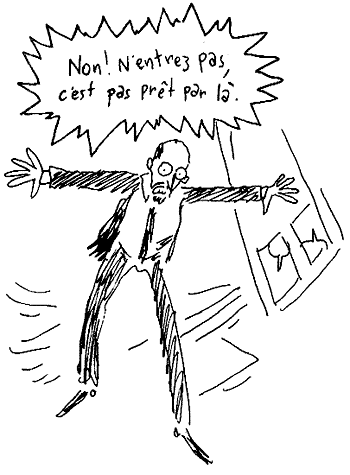 Non! N'entrez pas,
c'est pas prêt par là.